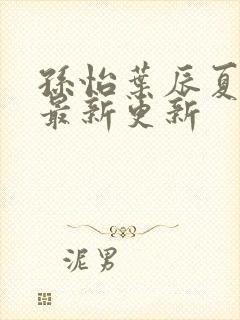 孫怡葉辰夏
最新更新
泥男